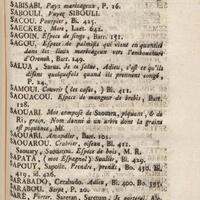 SABISABI, Pays marécageux, P. 16.
SABOULI. Payez SIBOULI.
SACOU, Pourpier, Bi. 425.
SAECKEE, Mere, Laet. 642.
SAGOIN. Espece de singe, Barr. 151.
SAGOU, Espece de palmiste qui vient en quantité
dans les lieux marécageux vers l'embouchure
d'Orenok, Barr. 149.
SALUA, Sarua. Je te salue, Adieu, c'est ce qu'ils
disent quelquefois quand ils prennent congé,
P. 24.
SAMOUI. Couvrir (les cases), Bi. 411.
SAOUACOU. Espece de mangeur de crebis, Barr.
128.
SAOUARI. Mot composé de Saouara, piquant, & de
Ri, grain. Nom donné à un arbre dont le grain
est piquant, M.
SAOUARI, Amandier, Barr. 101.
SAOUAROU. Crabier, oiseau, Bi. 411.
S. Saouary, Saoüarou. Espece de bois, M. R.
SAPATA, (mot Espagnol) Soulier, Bi. 429.
SAPOUI. Sapoile. Prendre, prends, Bo. 430, Bi.
419, id. 426.
SARABADO, Crabado. Adieu, Bi. 400, Bo. 395.
SARABOU. Sept, P. 20.
SARE, Porter. Saretan, Saretum, Je porterai, Ab.